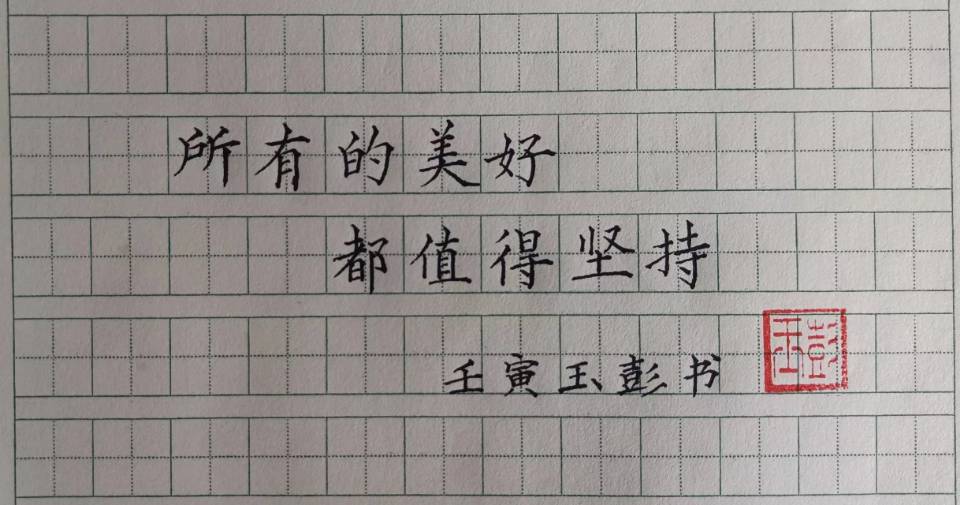 所有的美好
都值得坚持
壬寅玉彭书